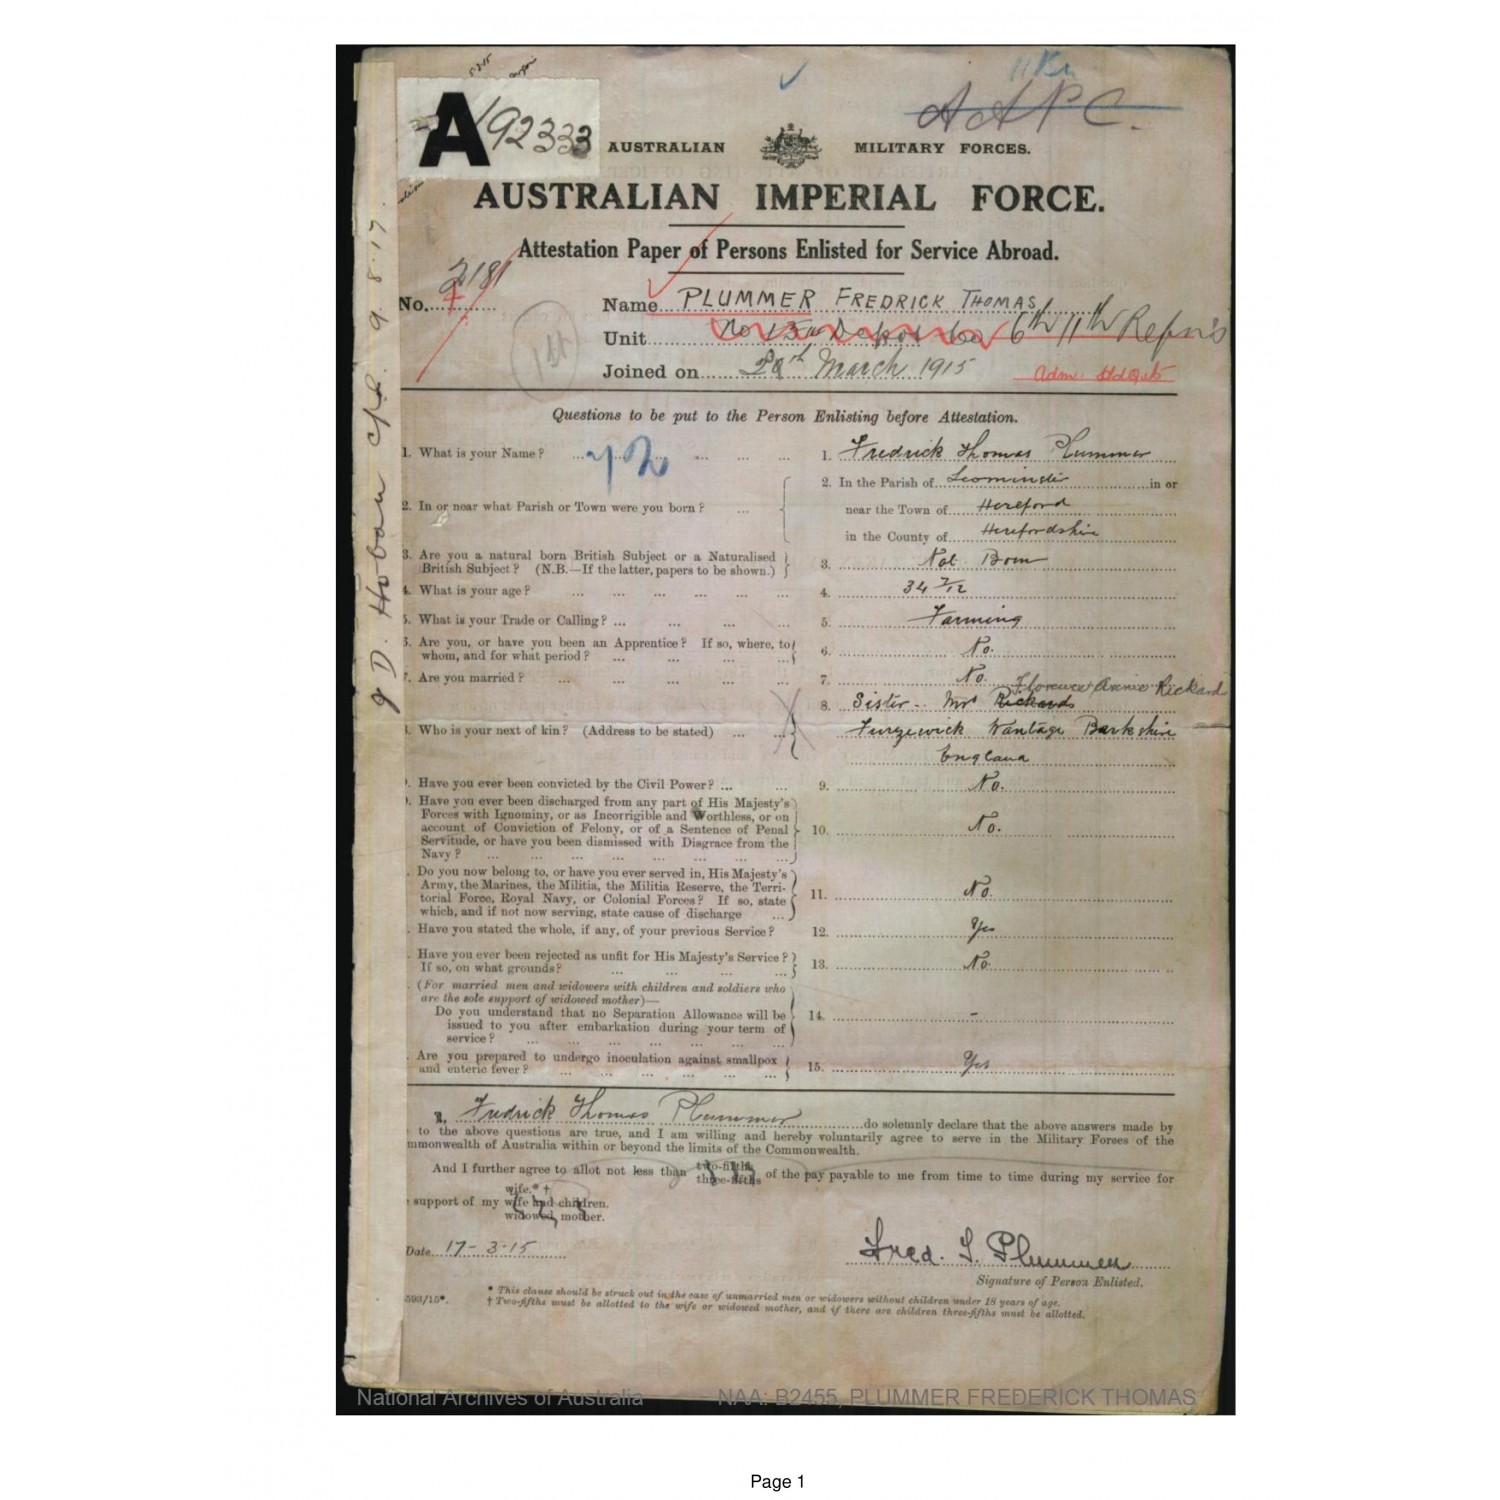 11 Bn
A A P C.
A 192333
AUSTRALIAN MILITARY FORCES.
AUSTRALIAN IMPERIAL FORCE.
Attestation Paper of Persons Enlisted for Service Abroad.
No. 2181
Name PLUMMER FREDRICK THOMAS
1st
Unit No 15 Depot Co 6th 11th Refns
Joined on March 1915
Adm. Hdqrs
Questions to be put to the Person Enlisting before Attestation.
1. What is your Name? ... 1. Fredrick Thomas Plummer
2. In or near what Parish or Town were you born? ... 2. In the Parish of Leominster in or
near the Town of Hereford
in the County of Herefordshire
3. Are you a natural born British Subject or a Naturalised
British Subject? (N.B.—If the latter, papers to be shown.) 3. Nat. Born
4. What is your age? ... 4. 34 7/12
5. What is your Trade or Calling? ... 5. Farming
6. Are you, or have you been an Apprentice? If so, where, to
whom, and for what period? ... 6. No.
7. Are you married? ... 7. No.
Florence Annie Rickard
8. Sister - Mrs Rickards
8. Who is your next of kin? (Address to be stated) ... Furzewick Wantage Barkshire
England
9. Have you ever been convicted by the Civil Power? ... 9. No.
10. Have you ever been discharged from any part of His Majesty's
Forces with Ignominy, or as Incorrigible and Worthless, or on
account of Conviction of Felony, or of a Sentence of Penal 10. No.
Servitude, or have you been dismissed with Disgrace from the
Navy? ...
Do you now belong to, or have you ever served in, His Majesty's
Army, the Marines, the Militia, the Militia Reserve, the Terri-
torial Force, Royal Navy, or Colonial Forces? If so, state 11. No.
which, and if not now serving, state cause of discharge ...
Have you stated the whole, if any, of your previous Service? 12. Yes
Have you ever been rejected as unfit for His Majesty's Service? 13. No.
If so, on what grounds? ...
(For married men and widowers with children and soldiers who
are the sole support of widowed mother)—
Do you understand that no Separation Allowance will be 14. -
issued to you after embarkation during your term of
service? ...
Are you prepared to undergo inoculation against smallpox
and enteric fever? ... 15. Yes
I, Fredrick Thomas Plummer do solemnly declare that the above answers made by
to the above questions are true, and I am willing and hereby voluntarily agree to serve in the Military Forces of the
mmonwealth of Australia within or beyond the limits of the Commonwealth.
And I further agree to allot not less than two-fifths three-fifths of the pay payable to me from time to time during my service for
wife.* †
support of my wife and children.
widowed mother.
Date 17-3-15
Fred. T. Plummer
Signature of Person Enlisted.
* This clause should be struck out in the case of unmarried men or widowers without children under 18 years of age.
593/15*. † Two-fifths must be allotted to the wife or widowed mother, and if there are children three-fifths must be allotted.
J D. Hoban Cpl. 9.8.17.
National Archives of Australia NAA: B2455, PLUMMER FREDERICK THOMAS
Page 1